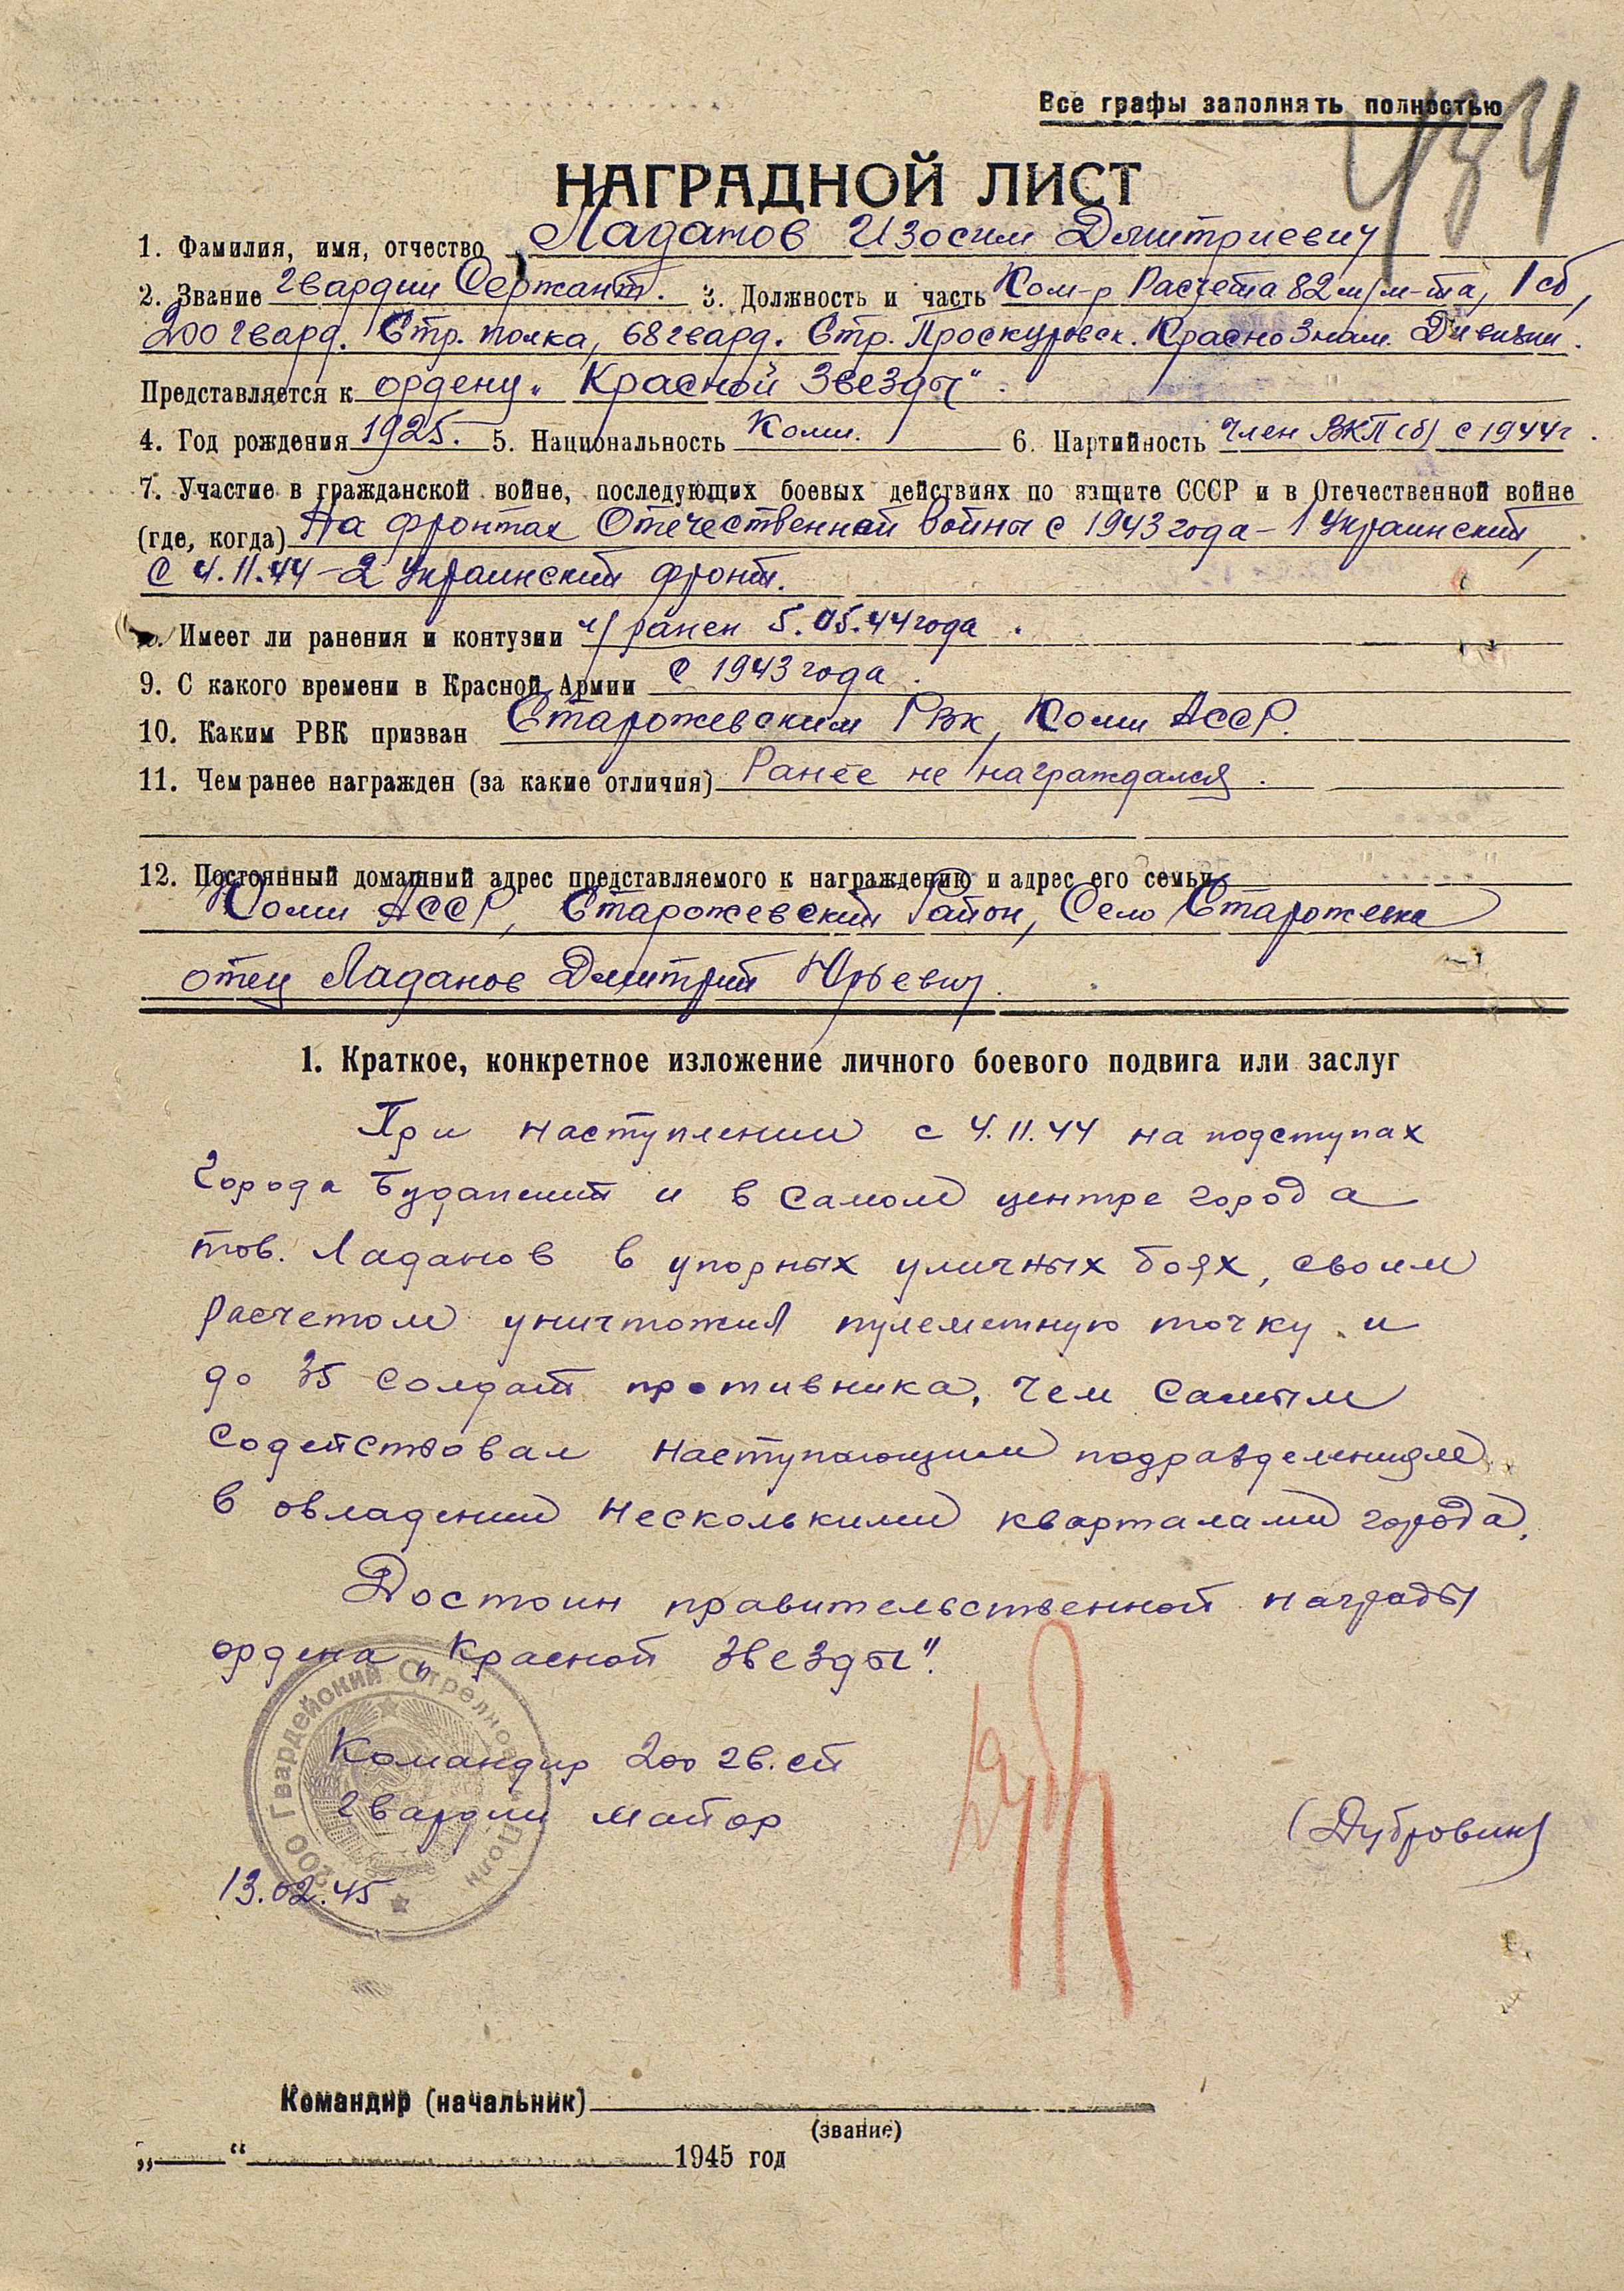 Все графы заполнять полностью
434
НАГРАДНОЙ ЛИСТ
1. Фамилия, имя, отчество Ладанов Изосим Дмитриевич
2. Звание гвардии Сержант. 3. Должность и часть Ком-р Расчета 82 м/м-та, 1 сб,
200 гвард. Стр. полка, 68 гвард. Стр. Проскуровск. КрасноЗнам. Дивизии.
Представляется к ордену „Красной Звезды“.
4. Год рождения 1925. 5. Национальность Коми. 6. Партийность член ВКП(б) с 1944г.
7. Участие в гражданской войне, последующих боевых действиях по защите СССР и в Отечественной войне
(где, когда) На фронтах Отечественной войны с 1943 года – 1 Украинский,
С 4.11.44 – 2 Украинский фронт.
Имеет ли ранения и контузии л/ранен 5.05.44 года.
9. С какого времени в Красной Армии с 1943 года.
10. Каким РВК призван Сторожевским Рвк, Коми АССР.
11. Чем ранее награжден (за какие отличия) Ранее не награждался.
12. Постоянный домашний адрес представляемого к награждению и адрес его семьи
Коми АССР, Старожевский Район, Село Старожевка
отец Ладанов Дмитрий Юрьевич.
1. Краткое, конкретное изложение личного боевого подвига или заслуг
При наступлении с 4.11.44 на подступах
города Будапешт и в самом центре города
тов. Ладанов в упорных уличных боях, своим
расчетом уничтожил пулеметную точку и
до 35 солдат противника, чем самым
содействовал наступающим подразделениям
в овладении несколькими кварталами города.
Достоин правительственной награды
ордена „Красной Звезды“.
Командир 200 гв. сп
гвардии майор (Дубровин)
13.02.45
200 Гвардейский Стрелковый Полк
Командир (начальник)
(звание)
„ “ 1945 год